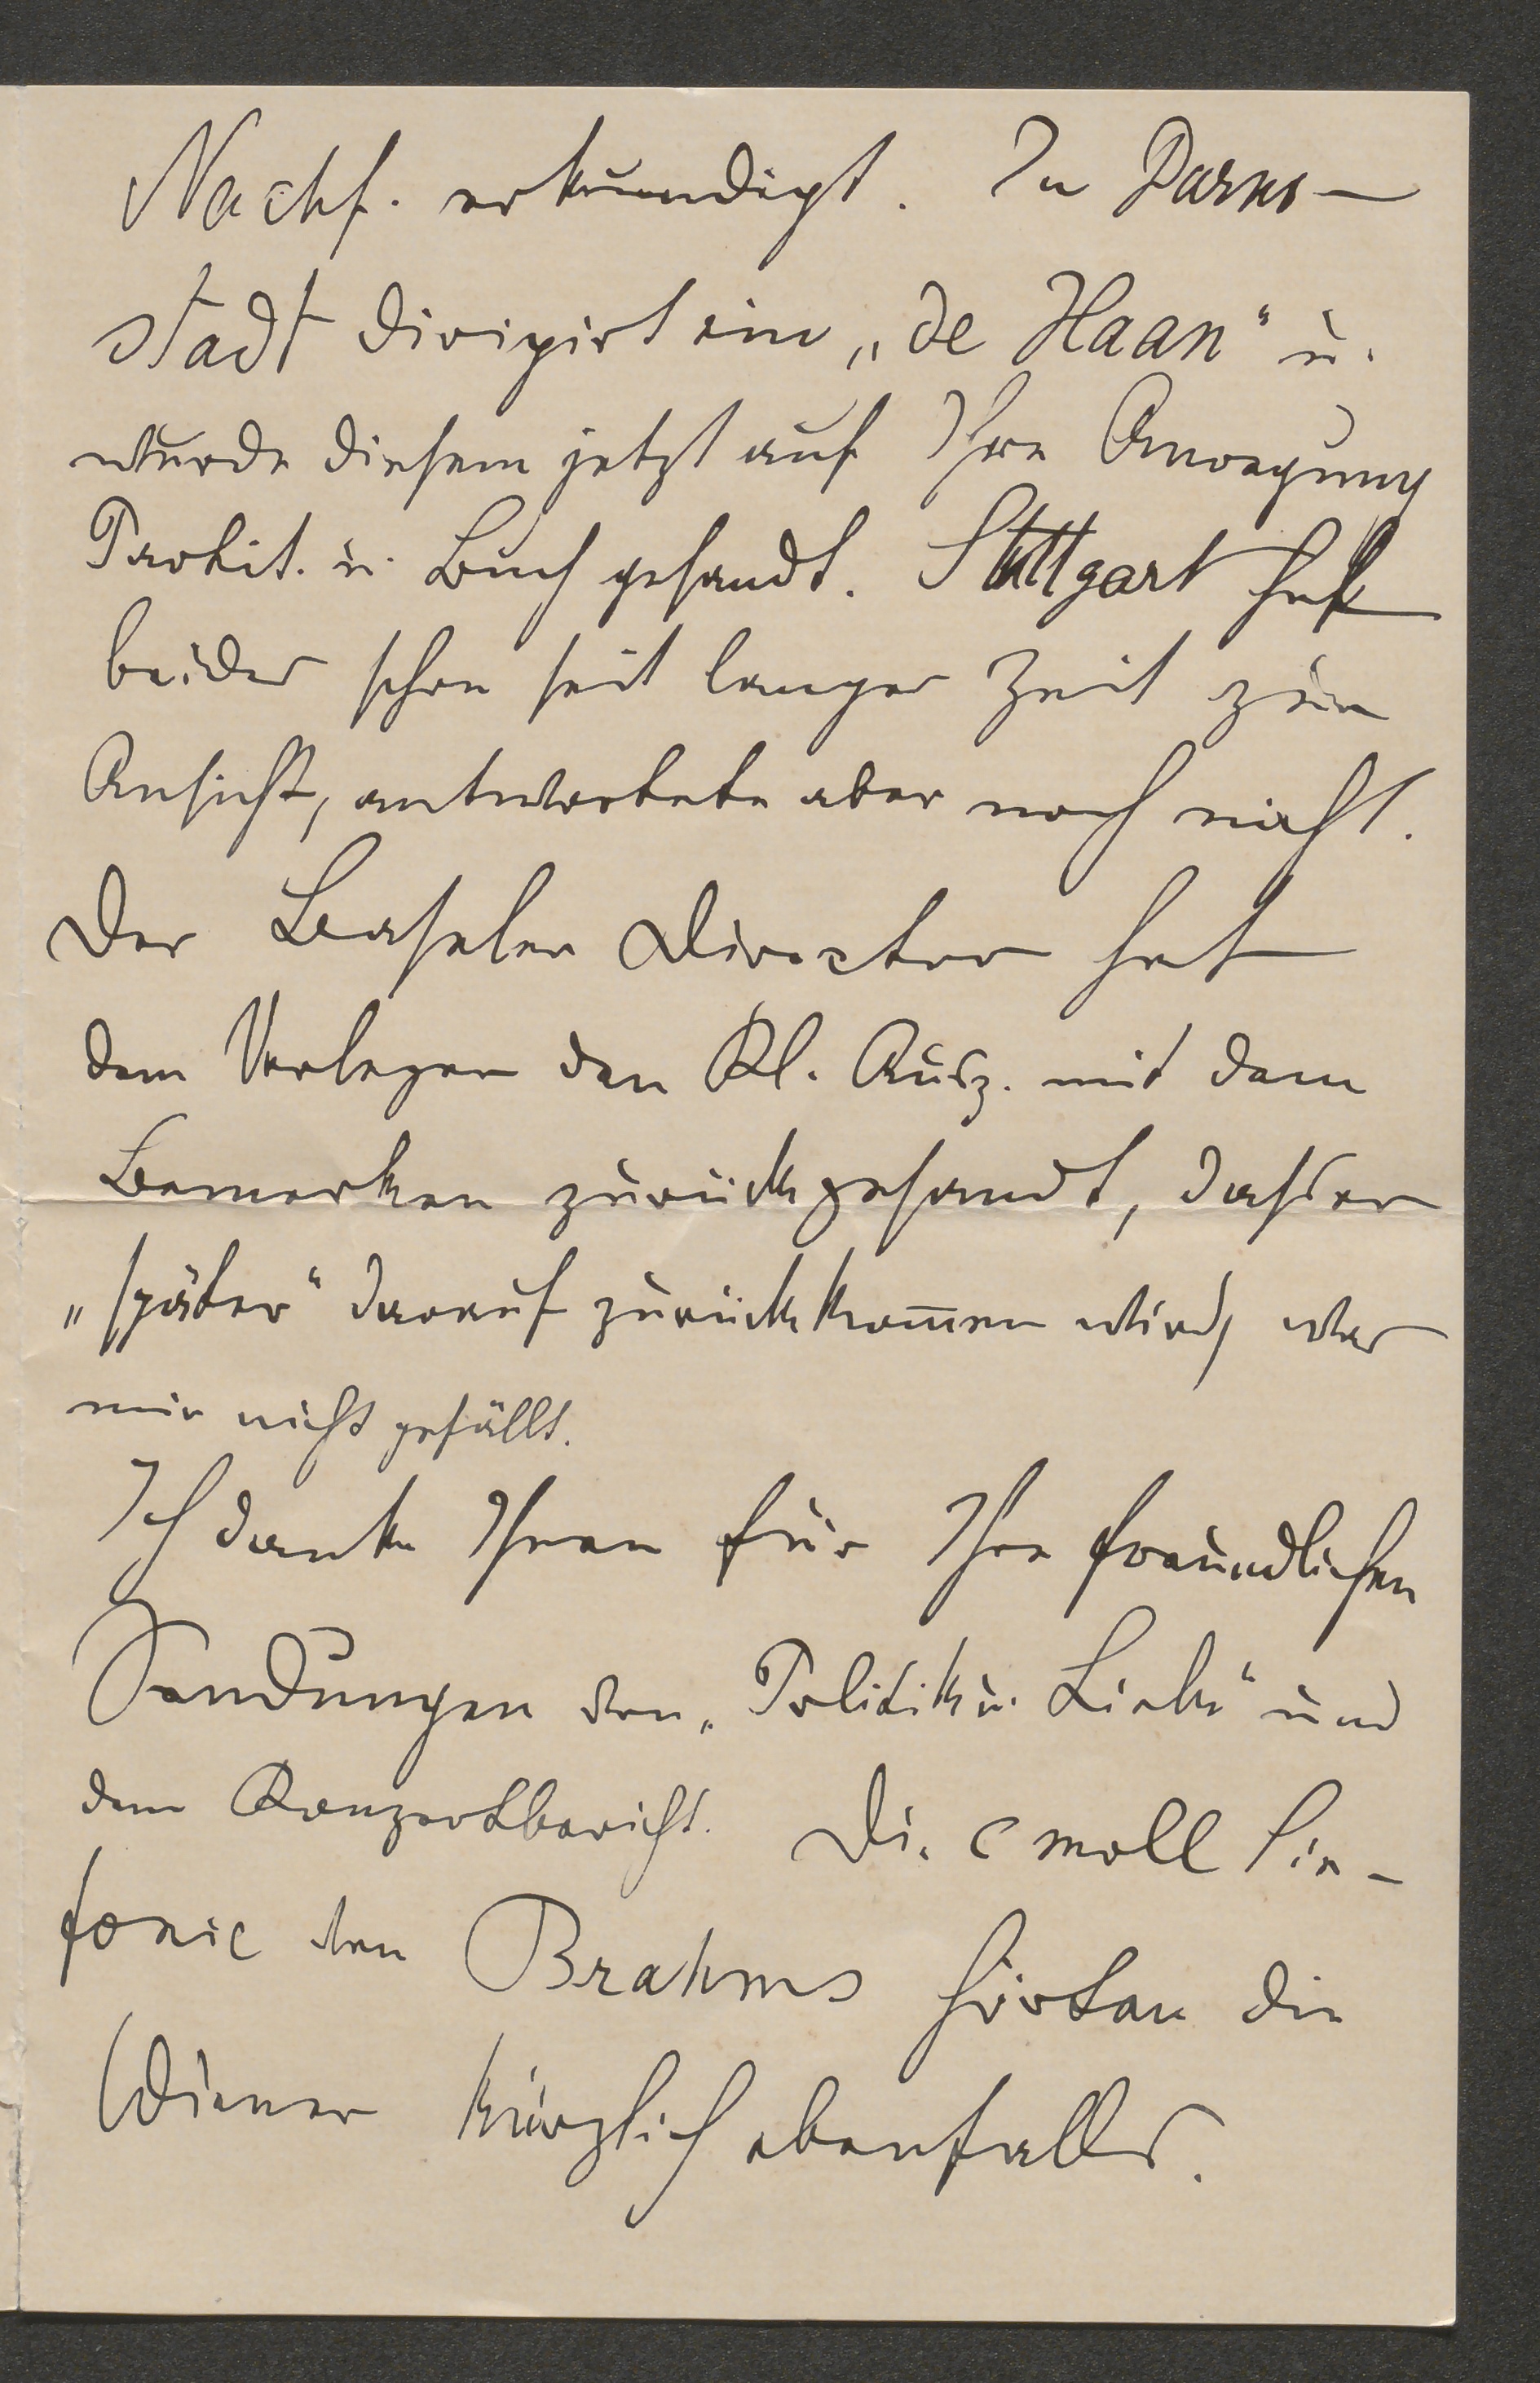 Nachf. erkundigt. In Darm-
stadt dirigirt ein „de Haan“ u.
wurde diesem jetzt auf Ihre Anregung
Partit. u. Buch gesandt. Stuttgart hat
beides schon seit langer Zeit zur
Ansicht, antwortete aber noch nicht.
Der Baseler Director hat
dem Verleger den Kl. Ausz. mit dem
Bemerken zurückgesandt, dass er
„später“ darauf zurückkom̄en wird, was
mir nicht gefällt.
Ich danke Ihnen für Ihre freundlichen
Sendungen von „Politik u. Liebe“ und
dem Konzertbericht. Die c moll Sin-
fonie von Brahms hörten die
Wiener kürzlich ebenfalls.